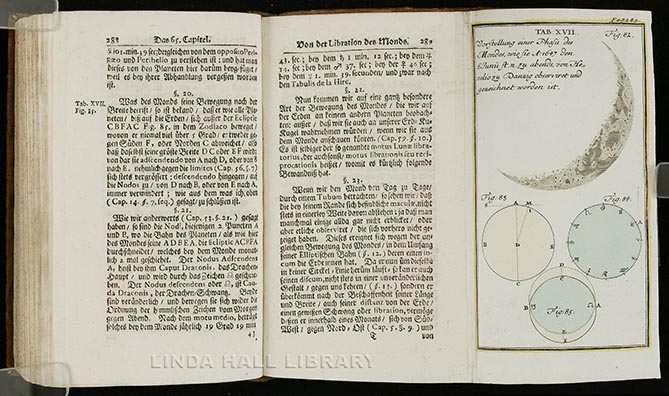 288 Das 65. Capitel.
§ 101. min. 19 sec; dergleichen von dem opposito Peri-
orio und Perihelio zu verstehen ist: und hat man
dieses von den Planeten hier darum beygefügt/
weil es bey ihrer Abhandlung vergessen worden
ist.
§. 20.
Tab. XVII.
Fig. 85.
Was des Monds seine Bewegung nach der
Breite betrifft/ so ist bekand/ daß er wie alle Pla-
neten/ biß auf die Erden/ sich ausser der Ecliptic
CBFAC Fig. 85, in dem Zodiaco beweget/
wovon er niemal viel über 5 Grad/ entweder ge-
gen Süden F, oder Norden C abweichet/ als
daß daselbst seine gröste Breite DC oder EF wird:
von dar sie adscendendo von A nach D, oder von B
nach E, nehmlich gegen die limites (Cap. 56. §. 7)
sich stets vergrössert: descendendo hingegen/ an
die Nodos zu/ von D nach B, oder von E nach A,
immer vermindert; wie aus dem was ich oben
(Cap. 14. §. 7. seq.) gesagt/ zu schliessen ist.
§. 21.
Wie wir anderwerts (Cap. 53. §. 21.) gesagt
haben/ so sind die Nodi, diejenigen 2. Puncten A
und B, wo die Bahn des Planeten/ als wie hier
des Monds seine ADBEA, die Ecliptic ACBFA
durchschneidet/ welches bey dem Monde monat-
lich 2 mal geschiehet. Der Nodus Adscendens
A, heist bey ihm Caput Draconis, das Drachen-
Haupt/ und wird durch das Zeichen ☊ geschrie-
ben. Der Nodus descendens oder ☋, ist Cau-
da Draconis, der Drachen-Schwantz. Beyde
sind veränderlich/ und bewegen sie sich wider die
Ordnung der himmlischen Zeichen vom Morgen
gegen Abend. Nach dem motu medio, beträgt
solches bey dem Monde jährlich 19 Grad 19 min
43
Von der Libration des Monds. 289
43. sec; bey dem ♄ 1 min. 12 sec; bey dem ♃
14 sec; bey dem ♂ 37 sec; bey der ♀ 46 sec;
bey dem ☿ 1. min. 59. secunden/ und zwar nach
den Tabulis de la Hire.
§. 22.
Nun kommen wir auf eine gantz besondere
Art der Bewegung des Mondes/ die wir auf
der Erden an keinem andern Planeten beobach-
ten: ausser/ daß wir sie auch an unserer Erd-Ku-
Kugel wahrnehmen würden/ wenn wir sie aus
dem Monde anschauen könten. (Cap. 59. §. 10.)
Es ist selbiger der so genandte motus Lunæ libra-
torius, der auch sonst/ motus librationis seu reci-
procationis heisset/ womit es kürtzlich folgende
Bewandniß hat.
§. 23.
Wenn wir den Mond von Tag zu Tage/
durch einen Tubum betrachten/ so sehen wir/ daß
die bey seinem Rande sich befindliche maculæ, nicht
stets in einerley Weite davon abstehen: ja daß man
manchmal einige allda gar nicht erblicket/ oder
aber etliche observiret/ die sich vorhero nicht ge-
zeiget haben. Dieses ereignet sich wegen der un-
gleichen Bewegung des Mondes/ in dem Umfang
seiner Elliptischen Bahn (§. 12.) deren einen fo-
cum die Erde innen hat. Da er nun um dieselbe
in keiner Circkel-Linie herum läuft: so kan er auch
seinen discum, nicht stets in einer unveränderlichen
Gestalt/ gegen uns kehren/ (§. 15.) sondern er
überkömmt nach der Beschaffenheit seiner Länge
und Breite/ auch seiner distanz von der Erde/
einen gewissen Schwang oder libration, vermöge
dessen er innerhalb eines Monats/ sich von Süd-
West/ gegen Nord-Ost (Cap. 5. §. 9.) und
T von
Pag. 289.
TAB. XVII. Fig. 82.
Vorstellung einer Phasis des
Mondes, wie sie A. 1647 den
st. n. zu abends, von He-
velio zu Danzig observiret und
gezeichnet worden ist.
Fig. 83
Fig. 84.
Fig. 85.
LINDA HALL LIBRARY